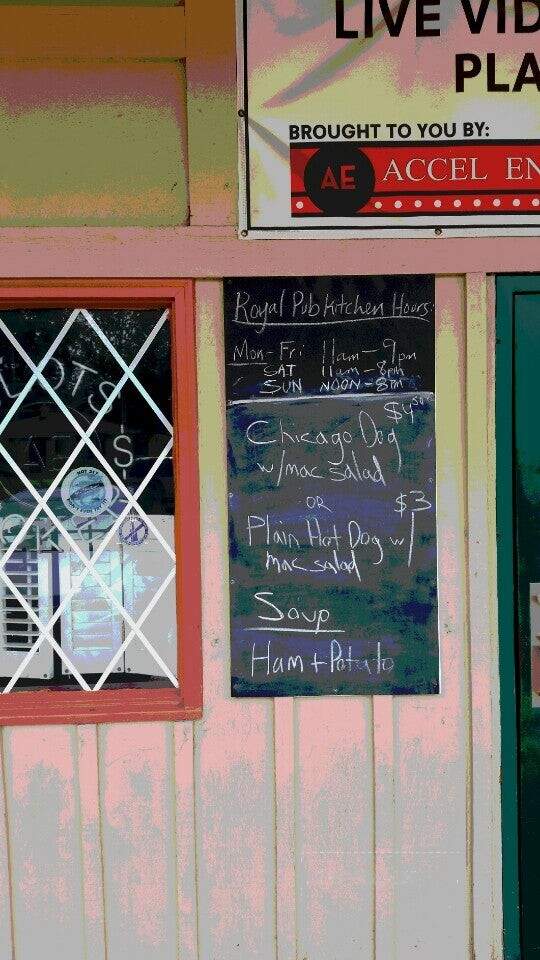 LIVE VID
PLA
BROUGHT TO YOU BY:
AE ACCEL EN
Royal Pub Kitchen Hours:
Mon-Fri 11am-9pm
SAT 11am-8pm
SUN NOON-8pm
$4.50
Chicago Dog
w/mac salad
OR $3
Plain Hot Dog w/
mac salad
Soup
Ham + Potato